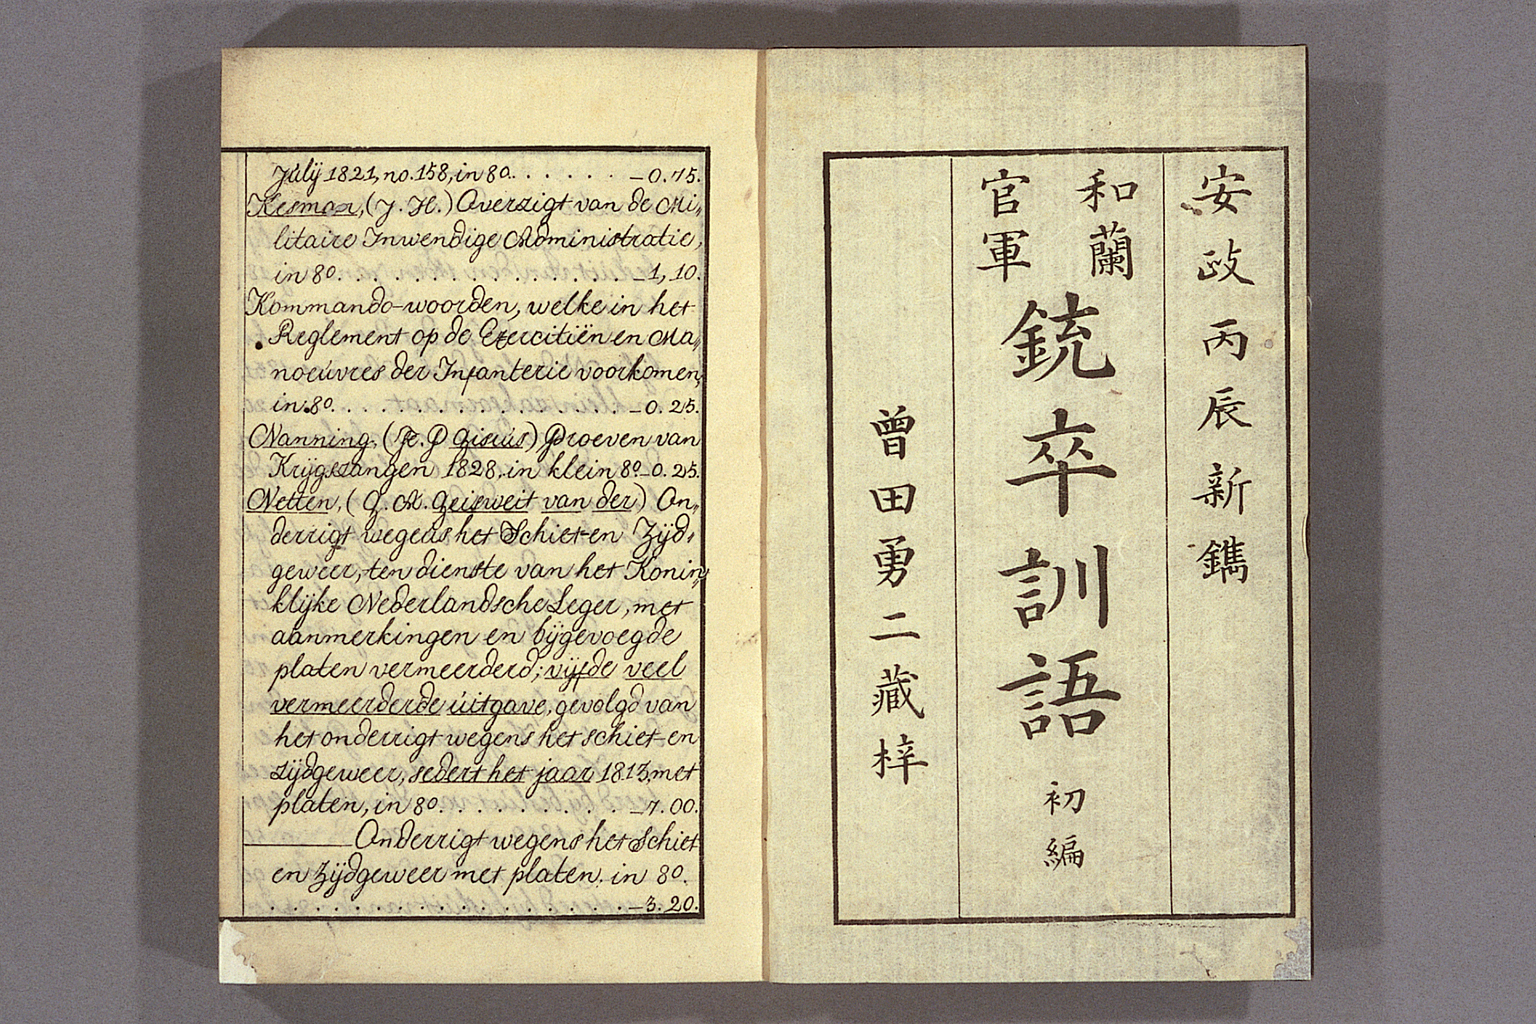 安政丙辰新鐫
和蘭
官軍
銃卒訓語
初編
曾田勇二藏梓
Julij 1821, no. 158, in 80. . . . . . . –0.75.
Kesman, (J. H.) Overzigt van de Mi„
litaire Inwendige Administratie,
in 80. . . . . . . . . . . . –1, 10.
Kommando-woorden, welke in het
Reglement op de Exercitiën en Ma„
noeúvres der Infanterie voorkomen,
in 80. . . . . . . . . . . . –0. 25.
Nanning, (F. P Gisiús) Proeven van
Krijgszangen 1828. in klein 80–0. 25.
Netten, (G. A. Geisweit van der) On„
derrigt wegens het Schiet-en Zijd„
geweer, ten dienste van het Konin„
klijke Nederlandsche Leger, met
aanmerkingen en bijgevoegde
platen vermeerderd; vijfde veel
vermeerderde úitgave, gevolgd van
het onderrigt wegens het schiet-en
zijdgeweer, sedert het jaar 1813, met
platen, in 80. . . . . . . . . –7. 00.
Onderrigt wegens het Schiet
en Zijdgeweer met platen. in 80.
. . . . . . . . . . . . . . –3. 20.